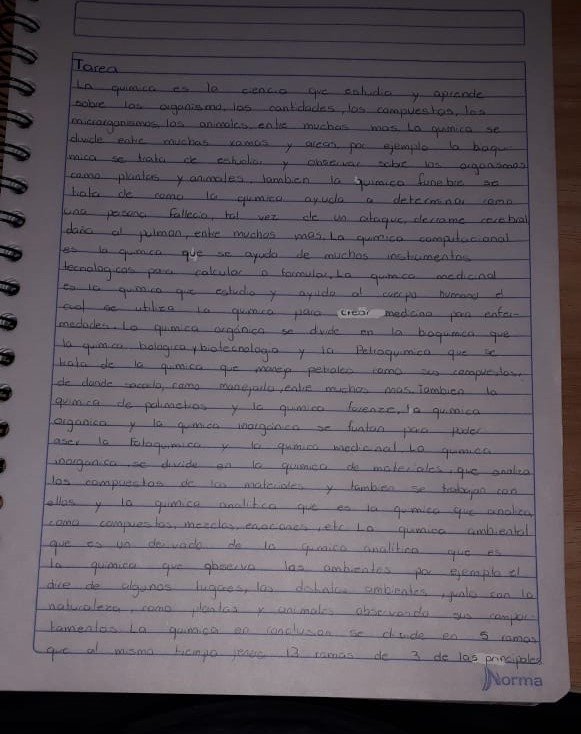 Tarea
La quimica es la ciencia que estudia y aprende
sobre los organismo, las cantidades, los compuestos, los
microrganismos los animales, entre muchas mas. La quimica se
divide entre muchas ramas y areas, por ejemplo la boqui
mica se trata de estudiar y observar sobre los organismos
como plantas y animales, tambien la quimica funebre se
trata de como la quimica ayuda a determinar como
una persona fallecio, tal vez de un ataque, derrame cerebral
daño al pulmon, entre muchos mas. La quimica computacional
es la quimica que se ayuda de muchos instrumentos
tecnologicos para calcular o formular, La quimica medicinal
es la quimica que estudia y ayuda al cuerpo humano el
cual se utiliza la quimica para crear medicina para enfer-
medades. La quimica orgánica se divide en la boquimica que
la quimica bologica y biotecnologia y la Petroquimica que se
trata de la quimica que maneja petroleo como sus compuestos,
de donde sacarlo, como manejarlo, entre muchos mas. Tambien la
quimica de polimetros y la quimica forenze, la quimica
organica y la quimica inorgánica se juntan para poder
aser la Fotoquimica y la quimica medicinal. La quimica
inorganica se divide en la quimica de materiales, que analiza
los compuestos de los materiales y tambien se trabajan con
ellos y la quimica analitica que es la quimica que analiza
como compuestos, mezclas, etc La quimica ambiental
que es un derivado de la quimica analitica que es
la quimica que observa los ambientes por ejemplo el
aire de algunos lugares, los distintos ambientes, junto con la
naturaleza como plantas y animales observando sus compor-
tamentos La quimica en conclusion se divide en 5 ramas
que al mismo tiempo 13 ramas de 3 de las principales
Norma